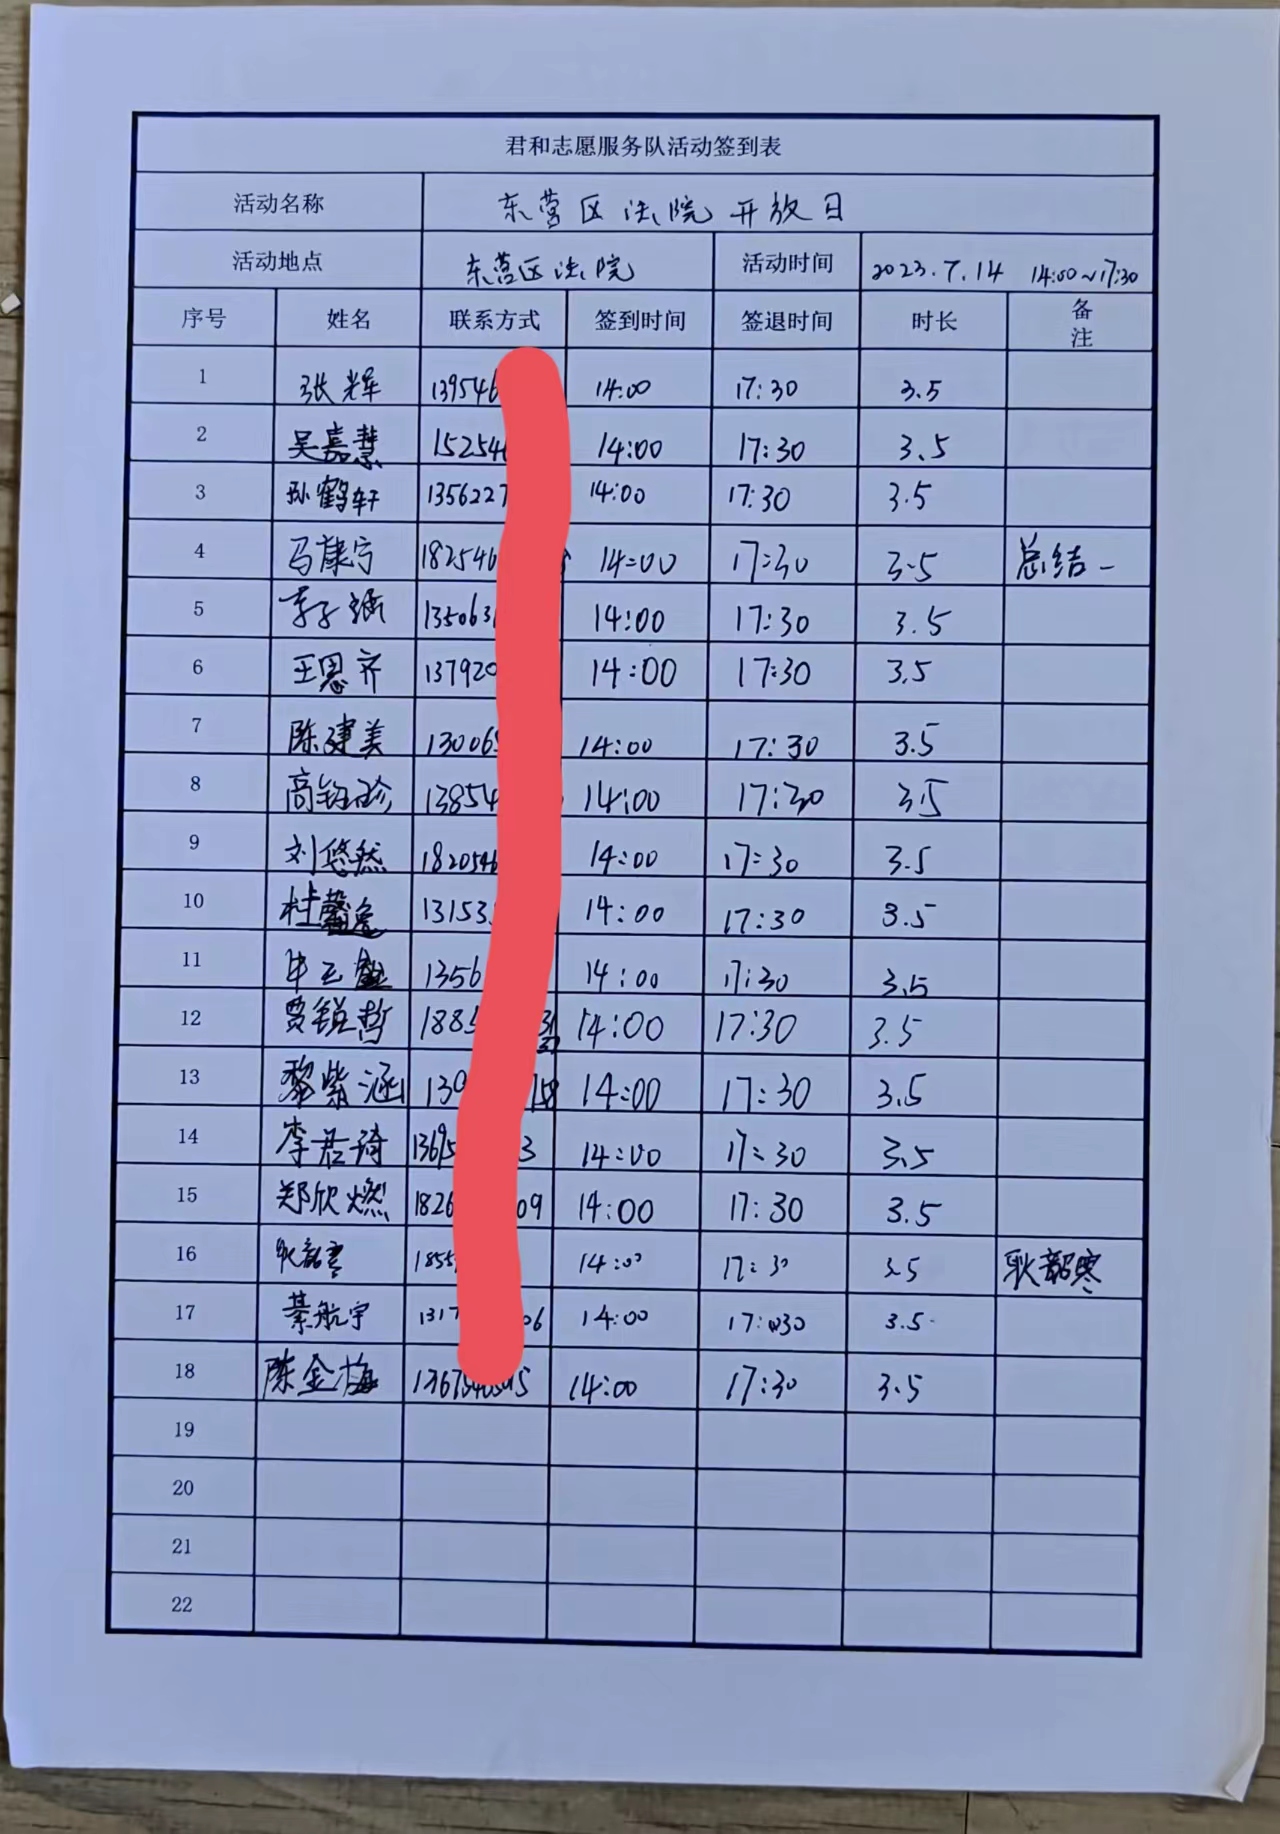 君和志愿服务队活动签到表
活动名称 东营区法院开放日
活动地点 东营区法院 活动时间 2023.7.14 14:00~17:30
序号 姓名 联系方式 签到时间 签退时间 时长 备注
1 张辉 139546 14:00 17:30 3.5
2 吴嘉慧 15254 14:00 17:30 3.5
3 孙鹤轩 1356227 14:00 17:30 3.5
4 马康宁 182546 14:00 17:30 3.5 总结一
5 李子涵 135063 14:00 17:30 3.5
6 王恩齐 137920 14:00 17:30 3.5
7 陈建美 13006 14:00 17:30 3.5
8 高钰珍 13854 14:00 17:30 3.5
9 刘悠然 1820546 14:00 17:30 3.5
10 杜馨逸 13153 14:00 17:30 3.5
11 1356 14:00 17:30 3.5
12 贾锐哲 1885 14:00 17:30 3.5
13 黎紫涵 139 158 14:00 17:30 3.5
14 李君琦 1369 3 14:00 17:30 3.5
15 郑欣燃 1826 09 14:00 17:30 3.5
16 耿韶寒 1855 14:00 17:30 3.5 耿韶寒
17 綦航宇 1317 06 14:00 17:30 3.5
18 陈金梅 14:00 17:30 3.5
19
20
21
22